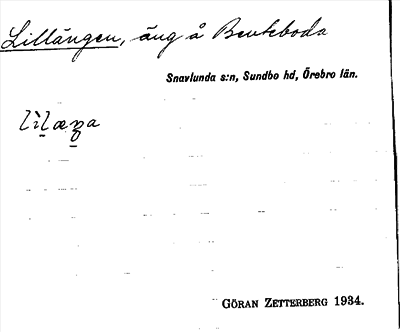 Lillängen, äng å Benteboda
Snavlunda s:n, Sundbo hd, Örebro län.
GÖRAN ZETTERBERG 1934.